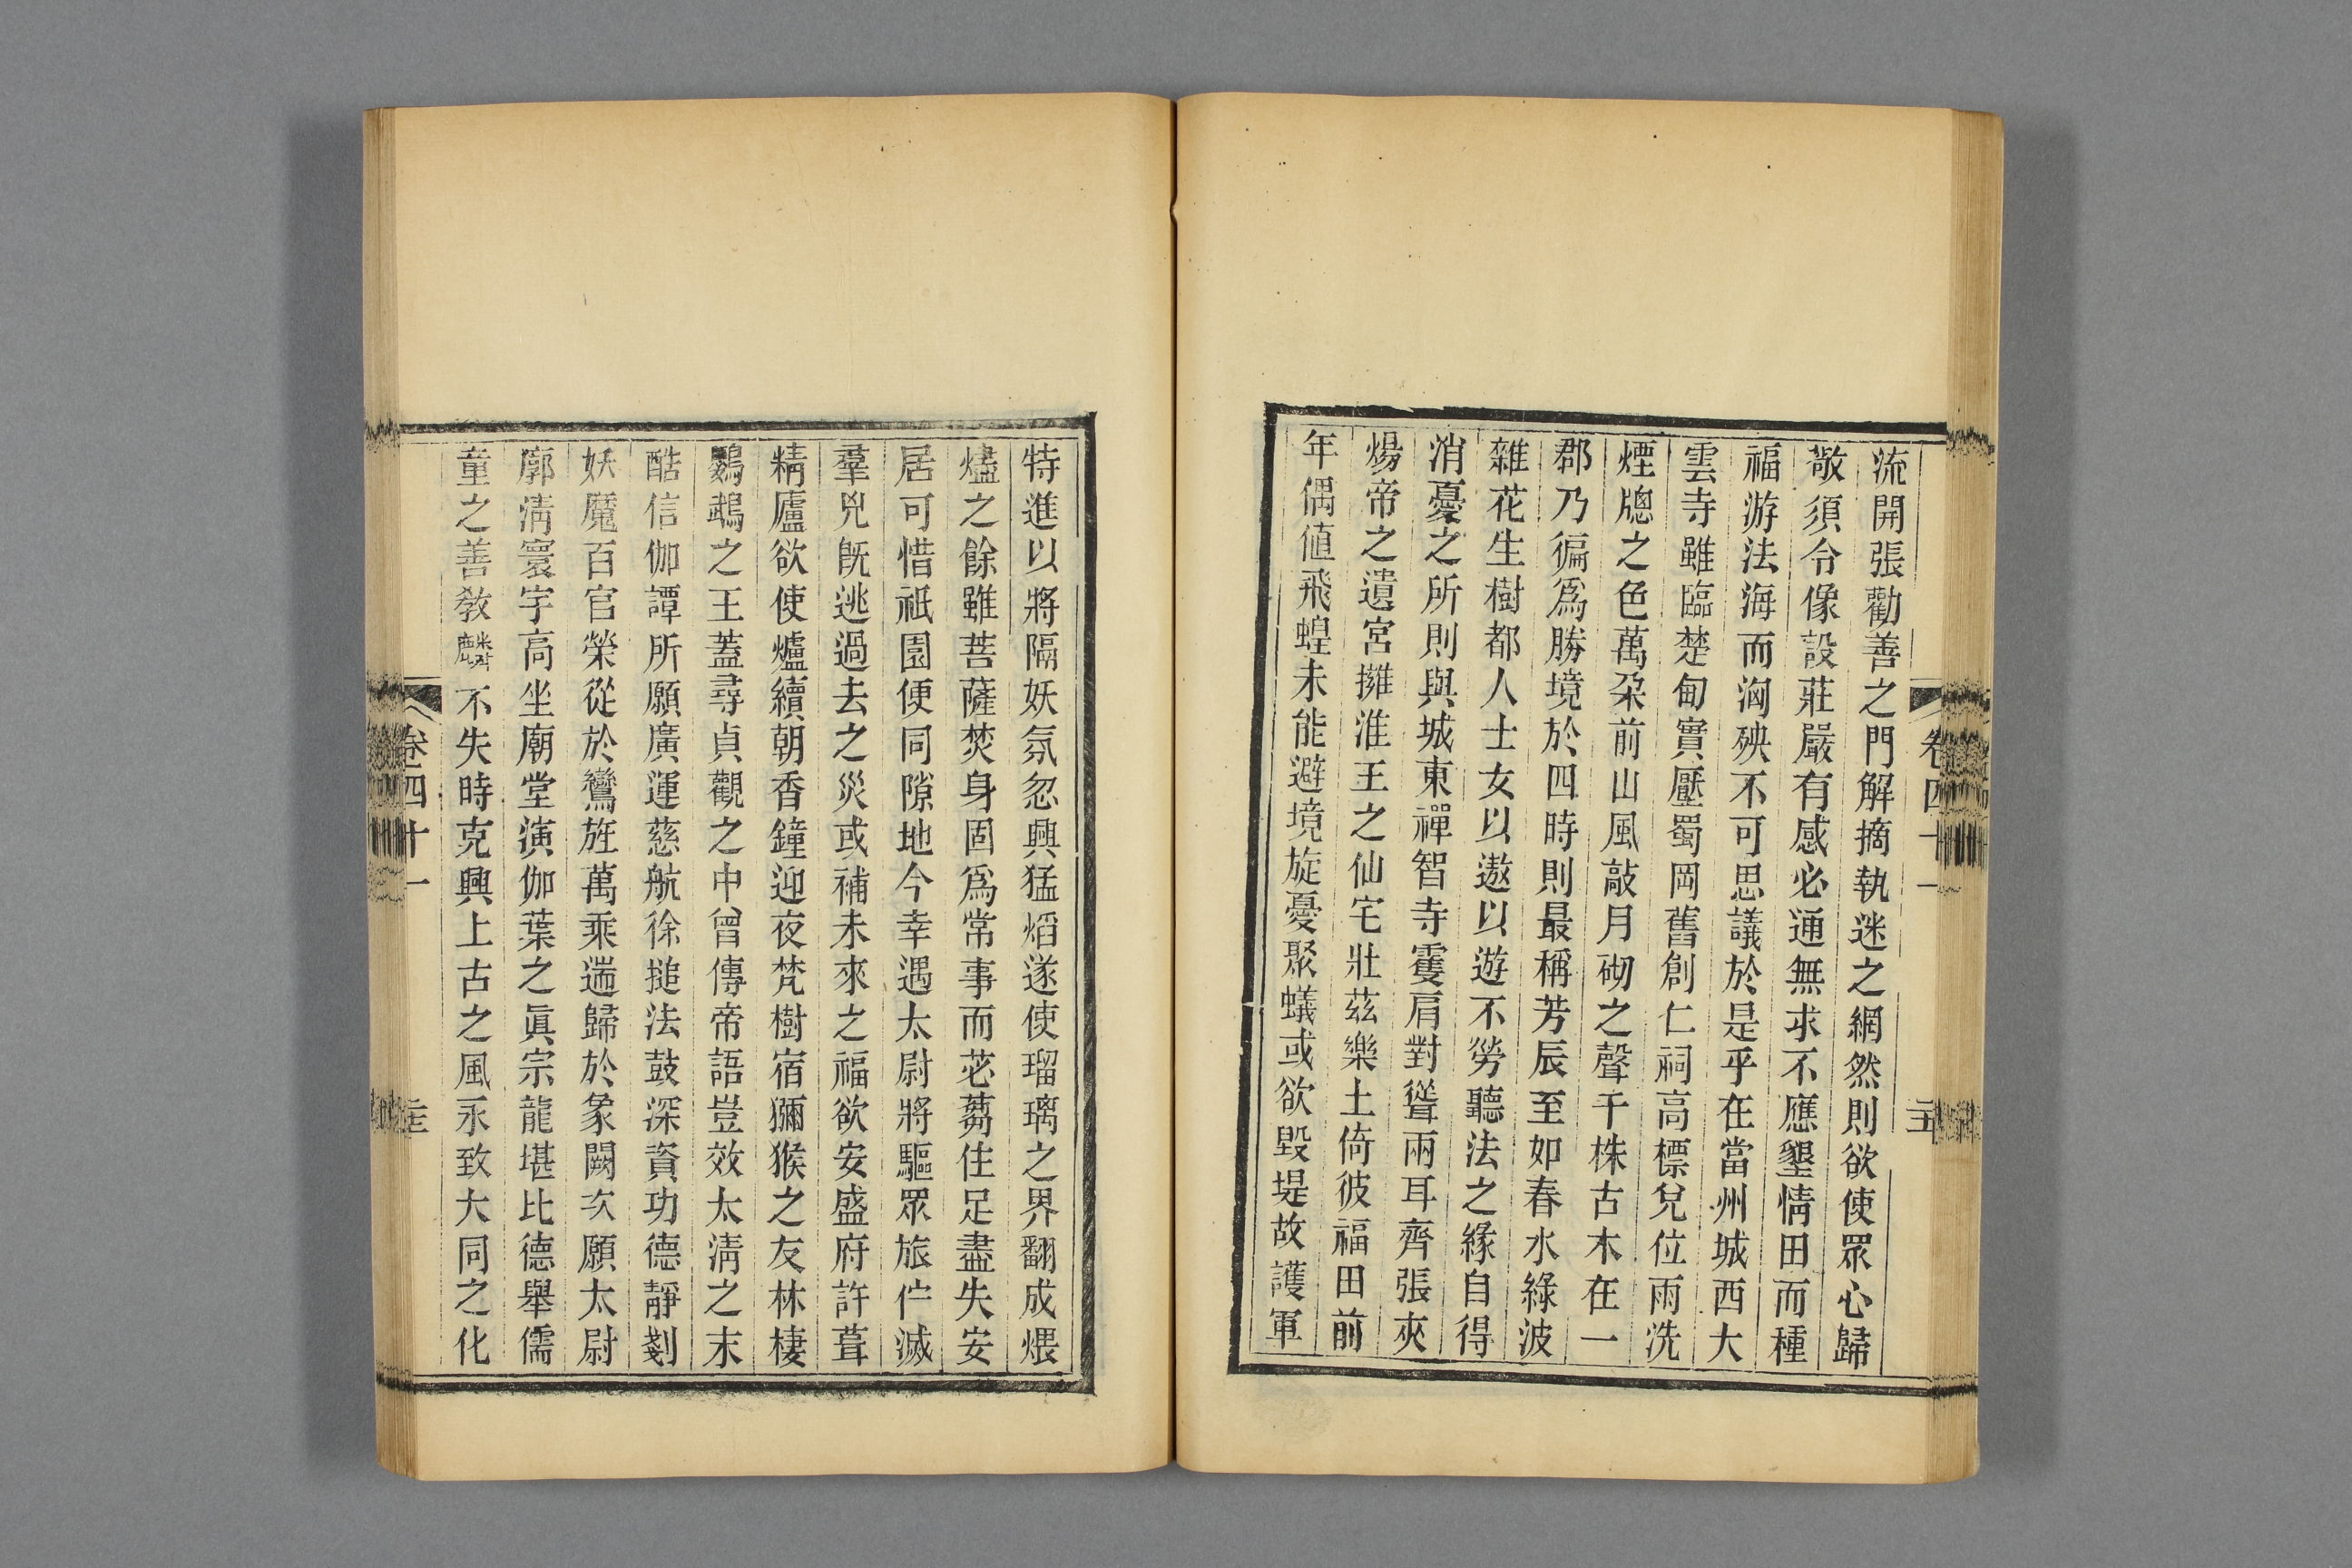 流開張勸善之門解摘執迷之網然則欲使眾心歸
敬須令像設莊嚴有感必通無求不應墾情田而種
福游法海而洶殃不可思議於是乎在當州城西大
雲寺雖臨楚甸實壓蜀岡舊創仁祠高標兌位雨洗
煙牕之色萬朶前山風敲月砌之聲千株古木在一
郡乃徧爲勝境於四時則最稱芳辰至如春水綠波
雜花生樹都人士女以遨以遊不勞聽法之緣自得
消憂之所則與城東禪智寺䨥肩對聳兩耳齊張夾
煬帝之遺宮擁淮王之仙宅壯茲樂土倚彼福田前
年偶值飛蝗未能避境旋憂聚蟻或欲毀堤故護軍
卷四十一
特進以將隔妖氛忽興猛熖遂使瑠璃之界翻成煨
燼之餘雖菩薩焚身固爲常事而苾蒭住足盡失安
居可惜祇園便同隙地今幸遇太尉將驅眾旅伫滅
羣兇旣逃過去之災或補未來之福欲安盛府許葺
精廬欲使爐續朝香鐘迎夜梵樹宿獼猴之友林棲
鸚鵡之王蓋尋貞觀之中曾傳帝語豈效太淸之末
酷信伽譚所願廣運慈航徐搥法鼓深資功德靜剗
妖魔百官榮從於鸞旌萬乘遄歸於象闕次願太尉
廓淸寰宇高坐廟堂演伽葉之眞宗龍堪比德舉儒
童之善敎麟不失時克興上古之風永致大同之化
卷四十一